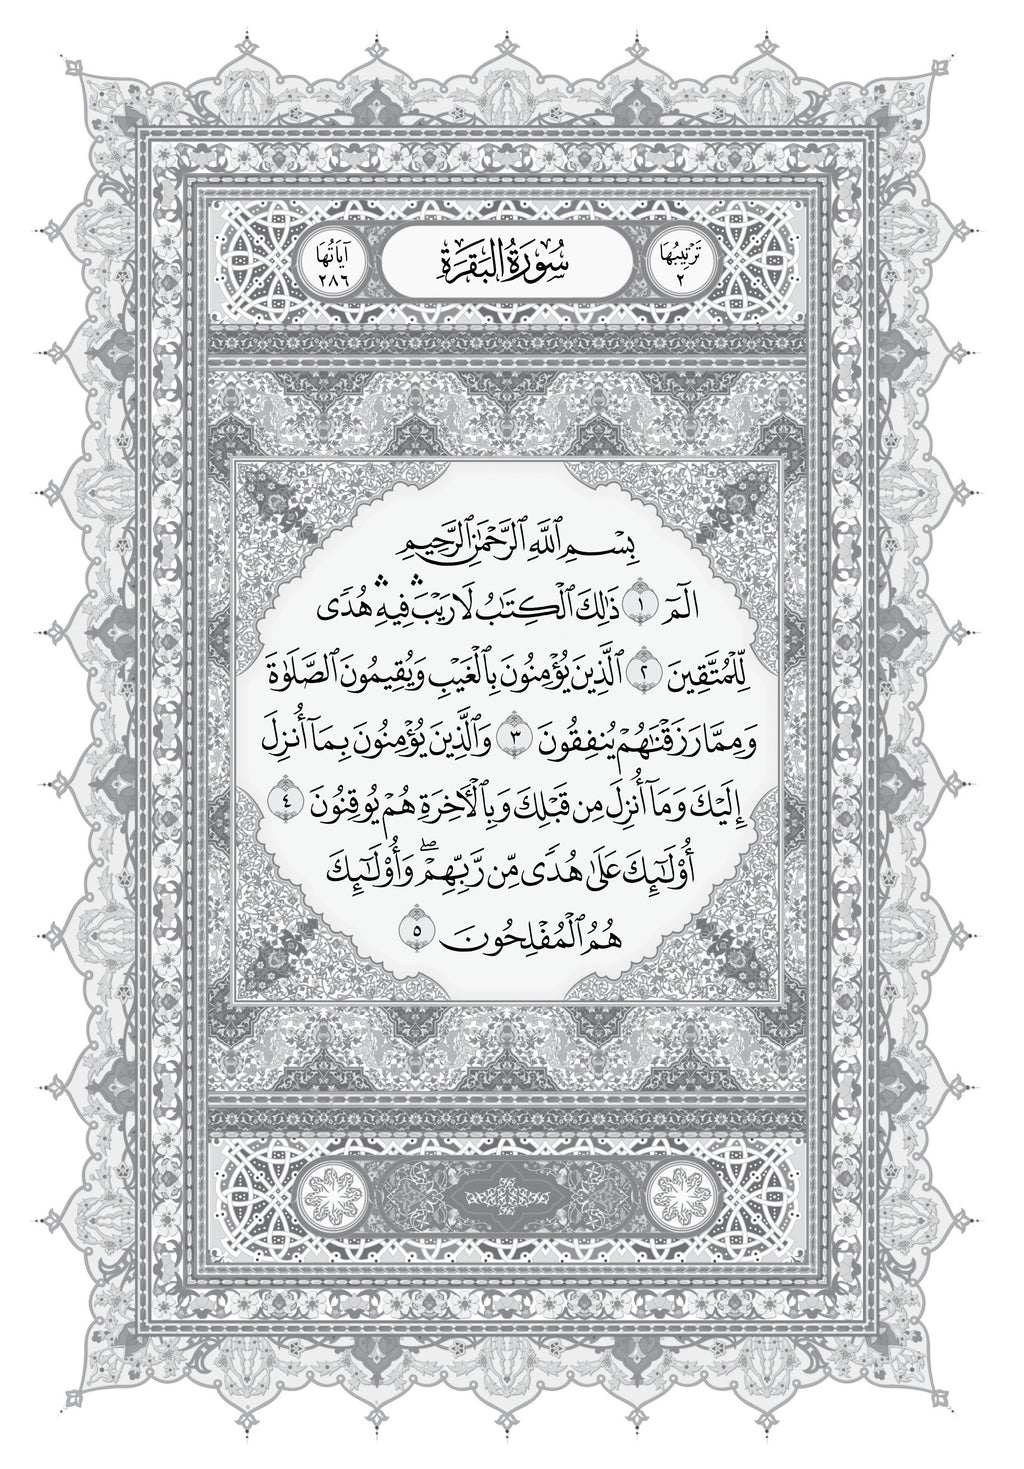 ترتيبها
٢
سُورَةُ البَقَرَةِ
آيَاتُهَا
٢٨٦
بِسْمِ ٱللَّهِ ٱلرَّحْمَٰنِ ٱلرَّحِيمِ
الٓمٓ ١ ذَٰلِكَ ٱلْكِتَٰبُ لَا رَيْبَۛ فِيهِۛ هُدًى
لِّلْمُتَّقِينَ ٢ ٱلَّذِينَ يُؤْمِنُونَ بِٱلْغَيْبِ وَيُقِيمُونَ ٱلصَّلَوٰةَ
وَمِمَّا رَزَقْنَٰهُمْ يُنفِقُونَ ٣ وَٱلَّذِينَ يُؤْمِنُونَ بِمَآ أُنزِلَ
إِلَيْكَ وَمَآ أُنزِلَ مِن قَبْلِكَ وَبِٱلْءَاخِرَةِ هُمْ يُوقِنُونَ ٤
أُو۟لَٰٓئِكَ عَلَىٰ هُدًى مِّن رَّبِّهِمْۖ وَأُو۟لَٰٓئِكَ
هُمُ ٱلْمُفْلِحُونَ ٥